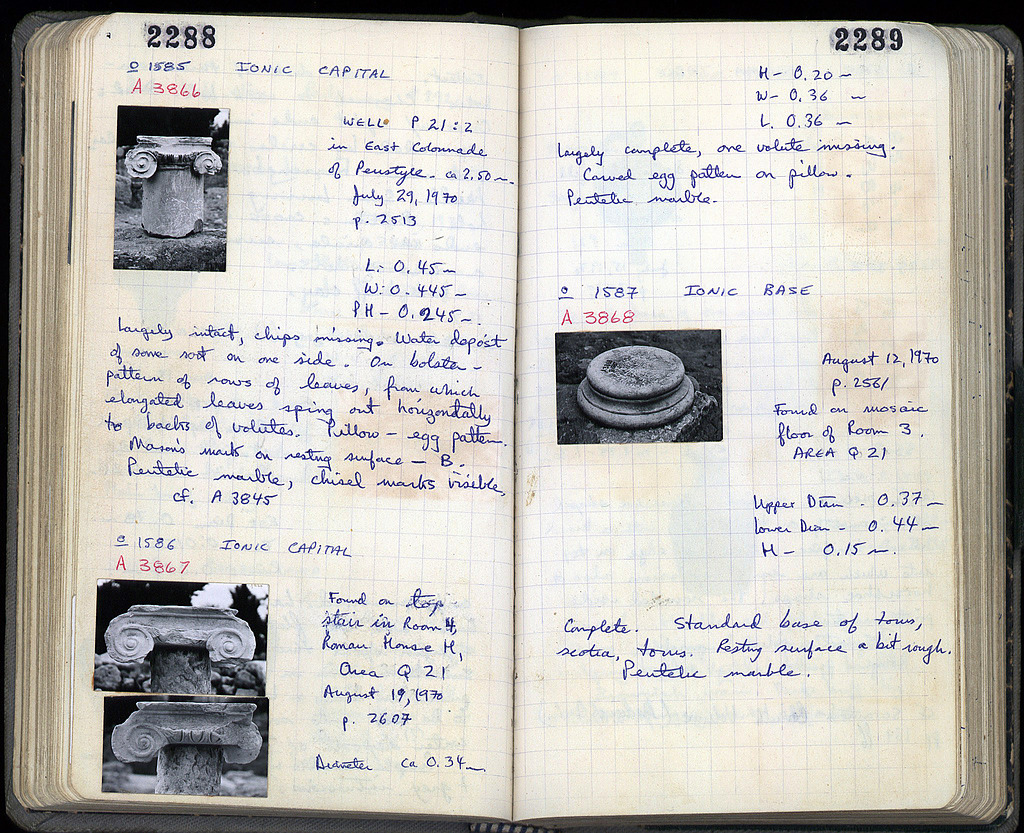 2288
o 1585 IONIC CAPITAL
A 3866
WELL P 21 : 2
in East Colonnade
of Peristyle - ca 2.50 m.
July 29, 1970
p. 2513
L: 0.45 m
W: 0.445 m
PH - 0.245 m.
Largely intact, chips missing. Water deposit
of some sort on one side. On bolster -
pattern of rows of leaves, from which
elongated leaves spring out horizontally
to backs of volutes. Pillow - egg pattern.
Mason's mark on resting surface - B.
Pentelic marble, chisel marks visible,
cf. A 3845
o 1586 IONIC CAPITAL
A 3867
Found on top
stair in Room 4,
Roman House H,
Area Q 21
August 19, 1970
p. 2607
Diameter ca 0.34 m.
2289
H - 0.20 m
W - 0.36 m
L. 0.36 m
Largely complete, one volute missing.
Carved egg pattern on pillow.
Pentelic marble.
o 1587 IONIC BASE
A 3868
August 12, 1970
p. 2561
Found on mosaic
floor of Room 3.
AREA Q 21
Upper Diam - 0.37 m
Lower Diam - 0.44 m
H - 0.15 m.
Complete. Standard base of torus,
scotia, torus. Resting surface a bit rough.
Pentelic marble.